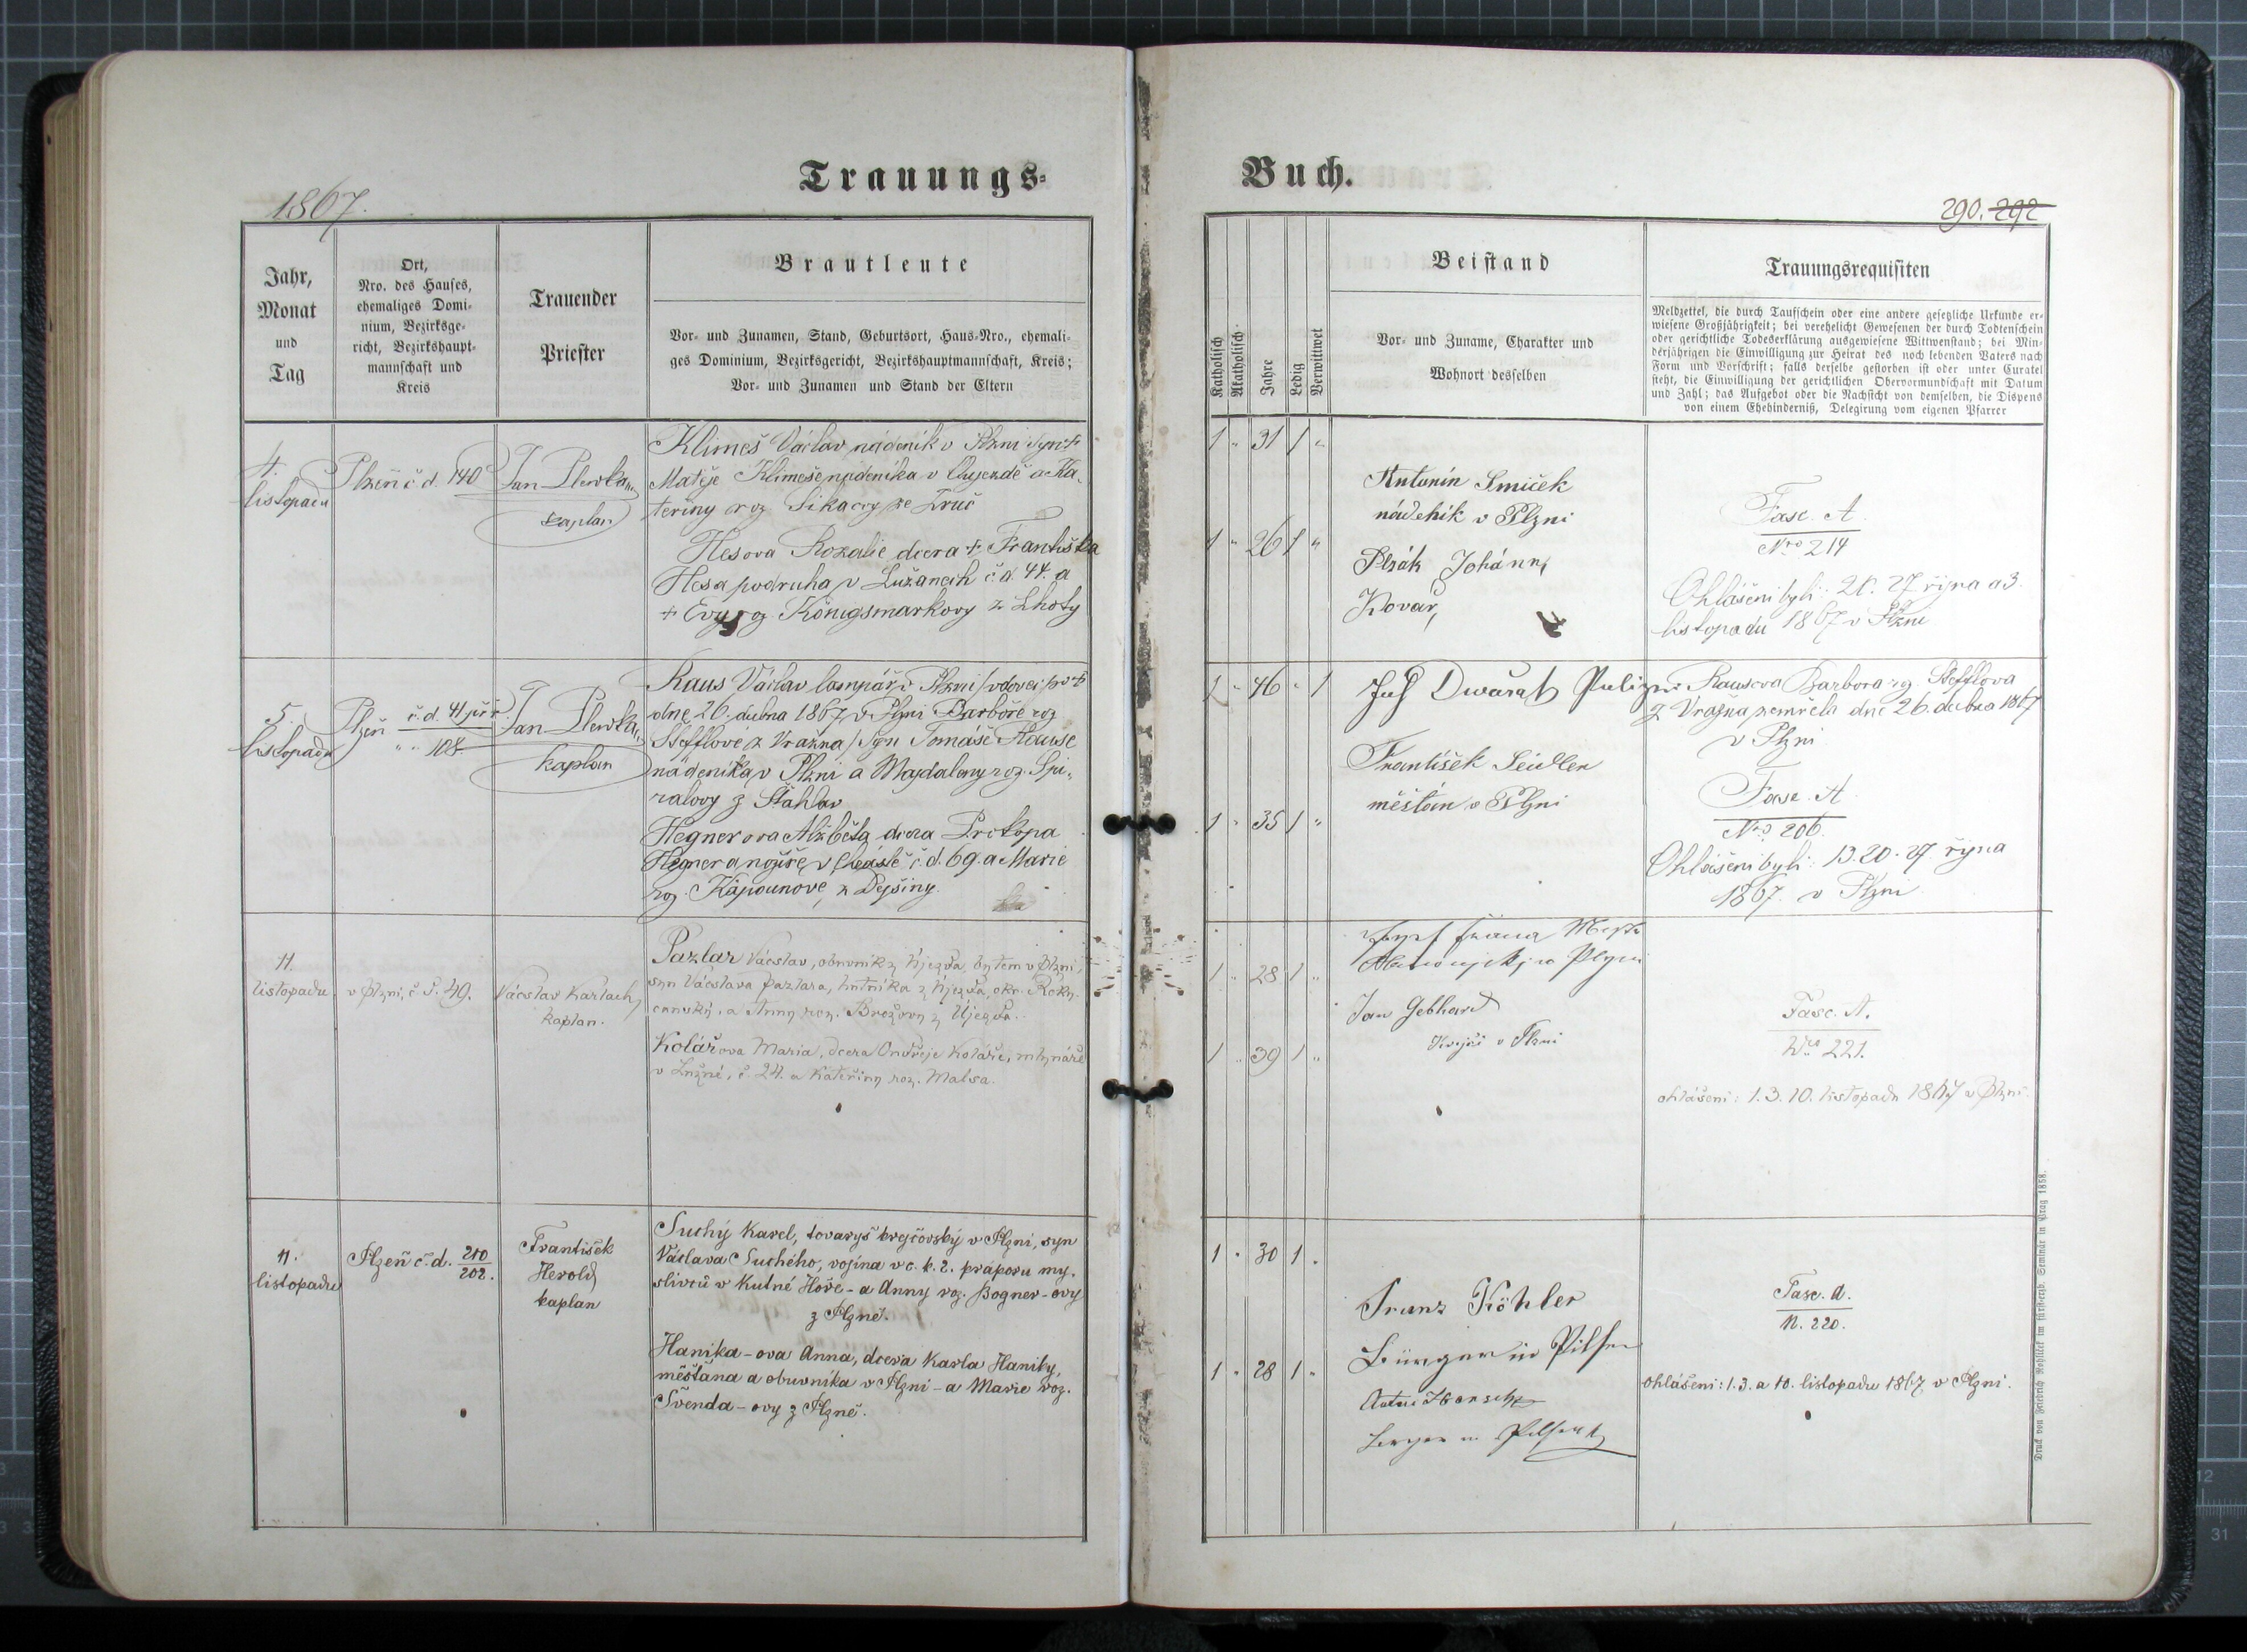 Trauungs-
1867.
Jahr,
Monat
und
Tag
Ort,
Nro. des Hauses,
ehemaliges Domi-
nium, Bezirksge-
richt, Bezirkshaupt-
mannschaft und
Kreis
Trauender
Priester
Brautleute
Vor- und Zunamen, Stand, Geburtsort, Haus-Nro., ehemali-
ges Dominium, Bezirksgericht, Bezirkshauptmannschaft, Kreis;
Vor- und Zunamen und Stand der Eltern
4.
listopadu
Plzeň č d. 140
Jan Plewka
kaplan
Klimeš Václav nádeník v Plzni syn †
Matěje Klimeše nádeníka v Chyjezdě a Ka-
teřiny roz Sikaovy ze Zruč
Hesova Rozalie dcera † Františka
Hesa podruha v Lužanech č. d. 44. a
+ Evy roz. Königsmarkovy z Lhoty
5.
listopadu
Plzeň č. d. 41 př
" " 108
Jan Plewka
kaplan
Raus Václav lampář v Plzni / vdovec po †
dne 26. dubna 1867 v Plzni Barboře roz
Stefflové z Vražna / syn Tomáše Rause
nádeníka v Plzni a Magdaleny roz. Spi-
ralovy z Štáhlav
Hegnerova Alžběta dcera Prokopa
Hegnera nožíře v č. d. 69. a Marie
roz. Kapounove, z Dejšiny.
11.
listopadu
v Plzni, č. d. 49.
Václav Karlach,
kaplan.
Pazlar Václav, obuvník z Újezda, bytem v Plzni,
syn Václava Pazlara, hutníka z Újezda, okr. Roky-
canský, a Anny roz. Brožovy z Újezda.
Kolářova Maria, dcera Ondřeje Koláře, mlynáře
v Lužné, č. 24. a Kateřiny roz. Malsa.
11.
listopadu
Plzeň č. d. 210
202.
František
Herold
kaplan
Suchý Karel, tovaryš krejčovský v Plzni, syn
Václava Suchého, vojína v c. k. 2. praporu my-
slivců v Kutné Hoře - a Anny roz. Bogner-ovy
z Plzně.
Hanika-ova Anna, dcera Karla Haniky,
měšťana a obuvníka v Plzni - a Marie roz.
Švenda-ovy z Plzně.
Buch.
290. 292
Katholisch
Akatholisch
Jahre
Ledig
Verwittwet
Beistand
Vor- und Zuname, Charakter und
Wohnort desselben
Trauungsrequisiten
Meldzettel, die durch Taufschein oder eine andere gesetzliche Urkunde er-
wiesene Großjährigkeit; bei verehelicht Gewesenen der durch Todtenschein
oder gerichtliche Todeserklärung ausgewiesene Wittwenstand; bei Min-
derjährigen die Einwilligung zur Heirat des noch lebenden Vaters nach
Form und Vorschrift; falls derselbe gestorben ist oder unter Curatel
steht, die Einwilligung der gerichtlichen Obervormundschaft mit Datum
und Zahl; das Aufgebot oder die Nachsicht von demselben, die Dispens
von einem Ehehinderniß, Delegirung vom eigenen Pfarrer
1 " 31 1 "
1 " 26 1 "
Antonín Smiček
nádeník v Plzni
Plzák Johánn,
Kovař,
Fasc. A
Nro 214
Ohlášeni byli: 20. 27 října a 3.
listopadu 1867 v Plzni
1 " 46 " 1
1 " 35 1 "
Jos Dwořak
František Seidler
měšťan v Plzni
Rausova Barbora rz Stefflova
z Vražna zemřela dne 26. dubna 1867
v Plzni
Fasc. A
Nro 206.
Ohlášeni byli: 13. 20. 27 října
1867. v Plzni
1 " 28 1 "
1 " 39 1 "
Jan Gebhard
Krejčí v Plzni
Fasc. A.
Nro 221.
ohlášeni: 1. 3. 10. listopadu 1867 v Plzni.
1 " 30 1 "
1 " 28 1 "
Franz Köhler
Bürger in Pilsen
Bürger in Pilsen
Fasc. A.
N. 220.
Ohlášeni: 1. 3. a 10. listopadu 1867 v Plzni.
Druck von Friedrich Rohliček im fürst-erzb. Seminär in Prag 1858.